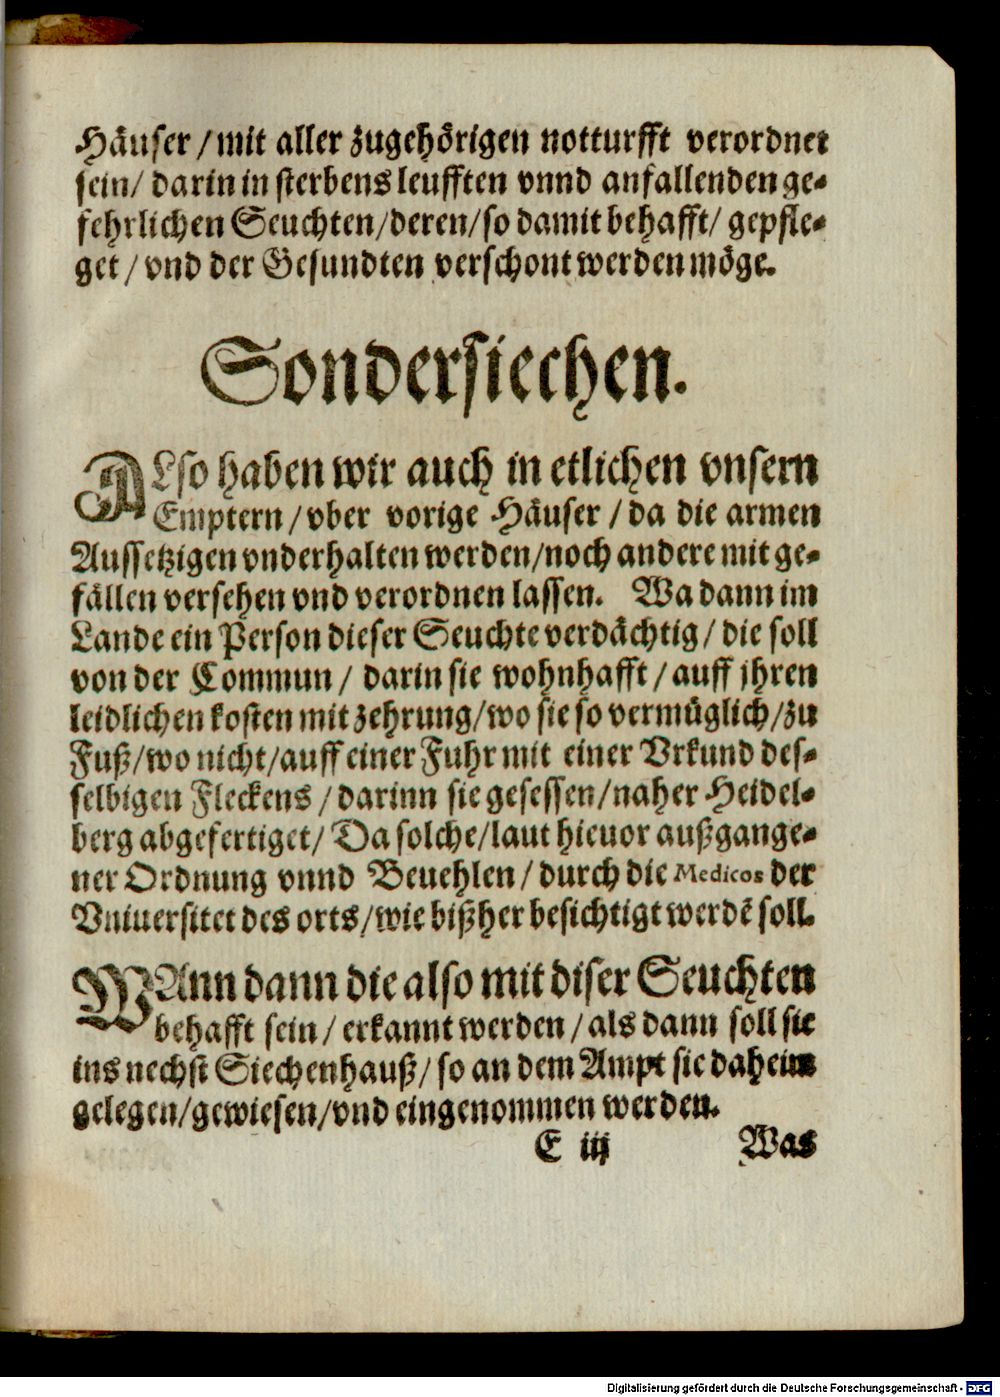 Häuser / mit aller zugehörigen notturfft verordnet
sein / darin in sterbens leufften vnnd anfallenden ge-
fehrlichen Seuchten / deren / so damit behafft / gepfle-
get / vnd der Gesundten verschont werden möge.
Sondersiechen.
ALso haben wir auch in etlichen vnsern
Emptern / vber vorige Häuser / da die armen
Aussetzigen vnderhalten werden / noch andere mit ge-
fällen versehen vnd verordnen lassen. Wa dann im
Lande ein Person dieser Seuchte verdächtig / die soll
von der Commun / darin sie wohnhafft / auff jhren
leidlichen kosten mit zehrung / wo sie so vermüglich / zu
Fuß / wo nicht / auff einer Fuhr mit einer Vrkund des-
selbigen Fleckens / darinn sie gesessen / naher Heidel-
berg abgefertiget / Da solche / laut hieuor außgange-
ner Ordnung vnnd Beuehlen / durch die Medicos der
Vniuersitet des orts / wie bißher besichtigt werdē soll.
WAnn dann die also mit diser Seuchten
behafft sein / erkannt werden / als dann soll sie
ins nechst Siechenhauß / so an dem Ampt sie daheim
gelegen / gewiesen / vnd eingenommen werden.
E iij Was
Digitalisierung gefördert durch die Deutsche Forschungsgemeinschaft - DFG